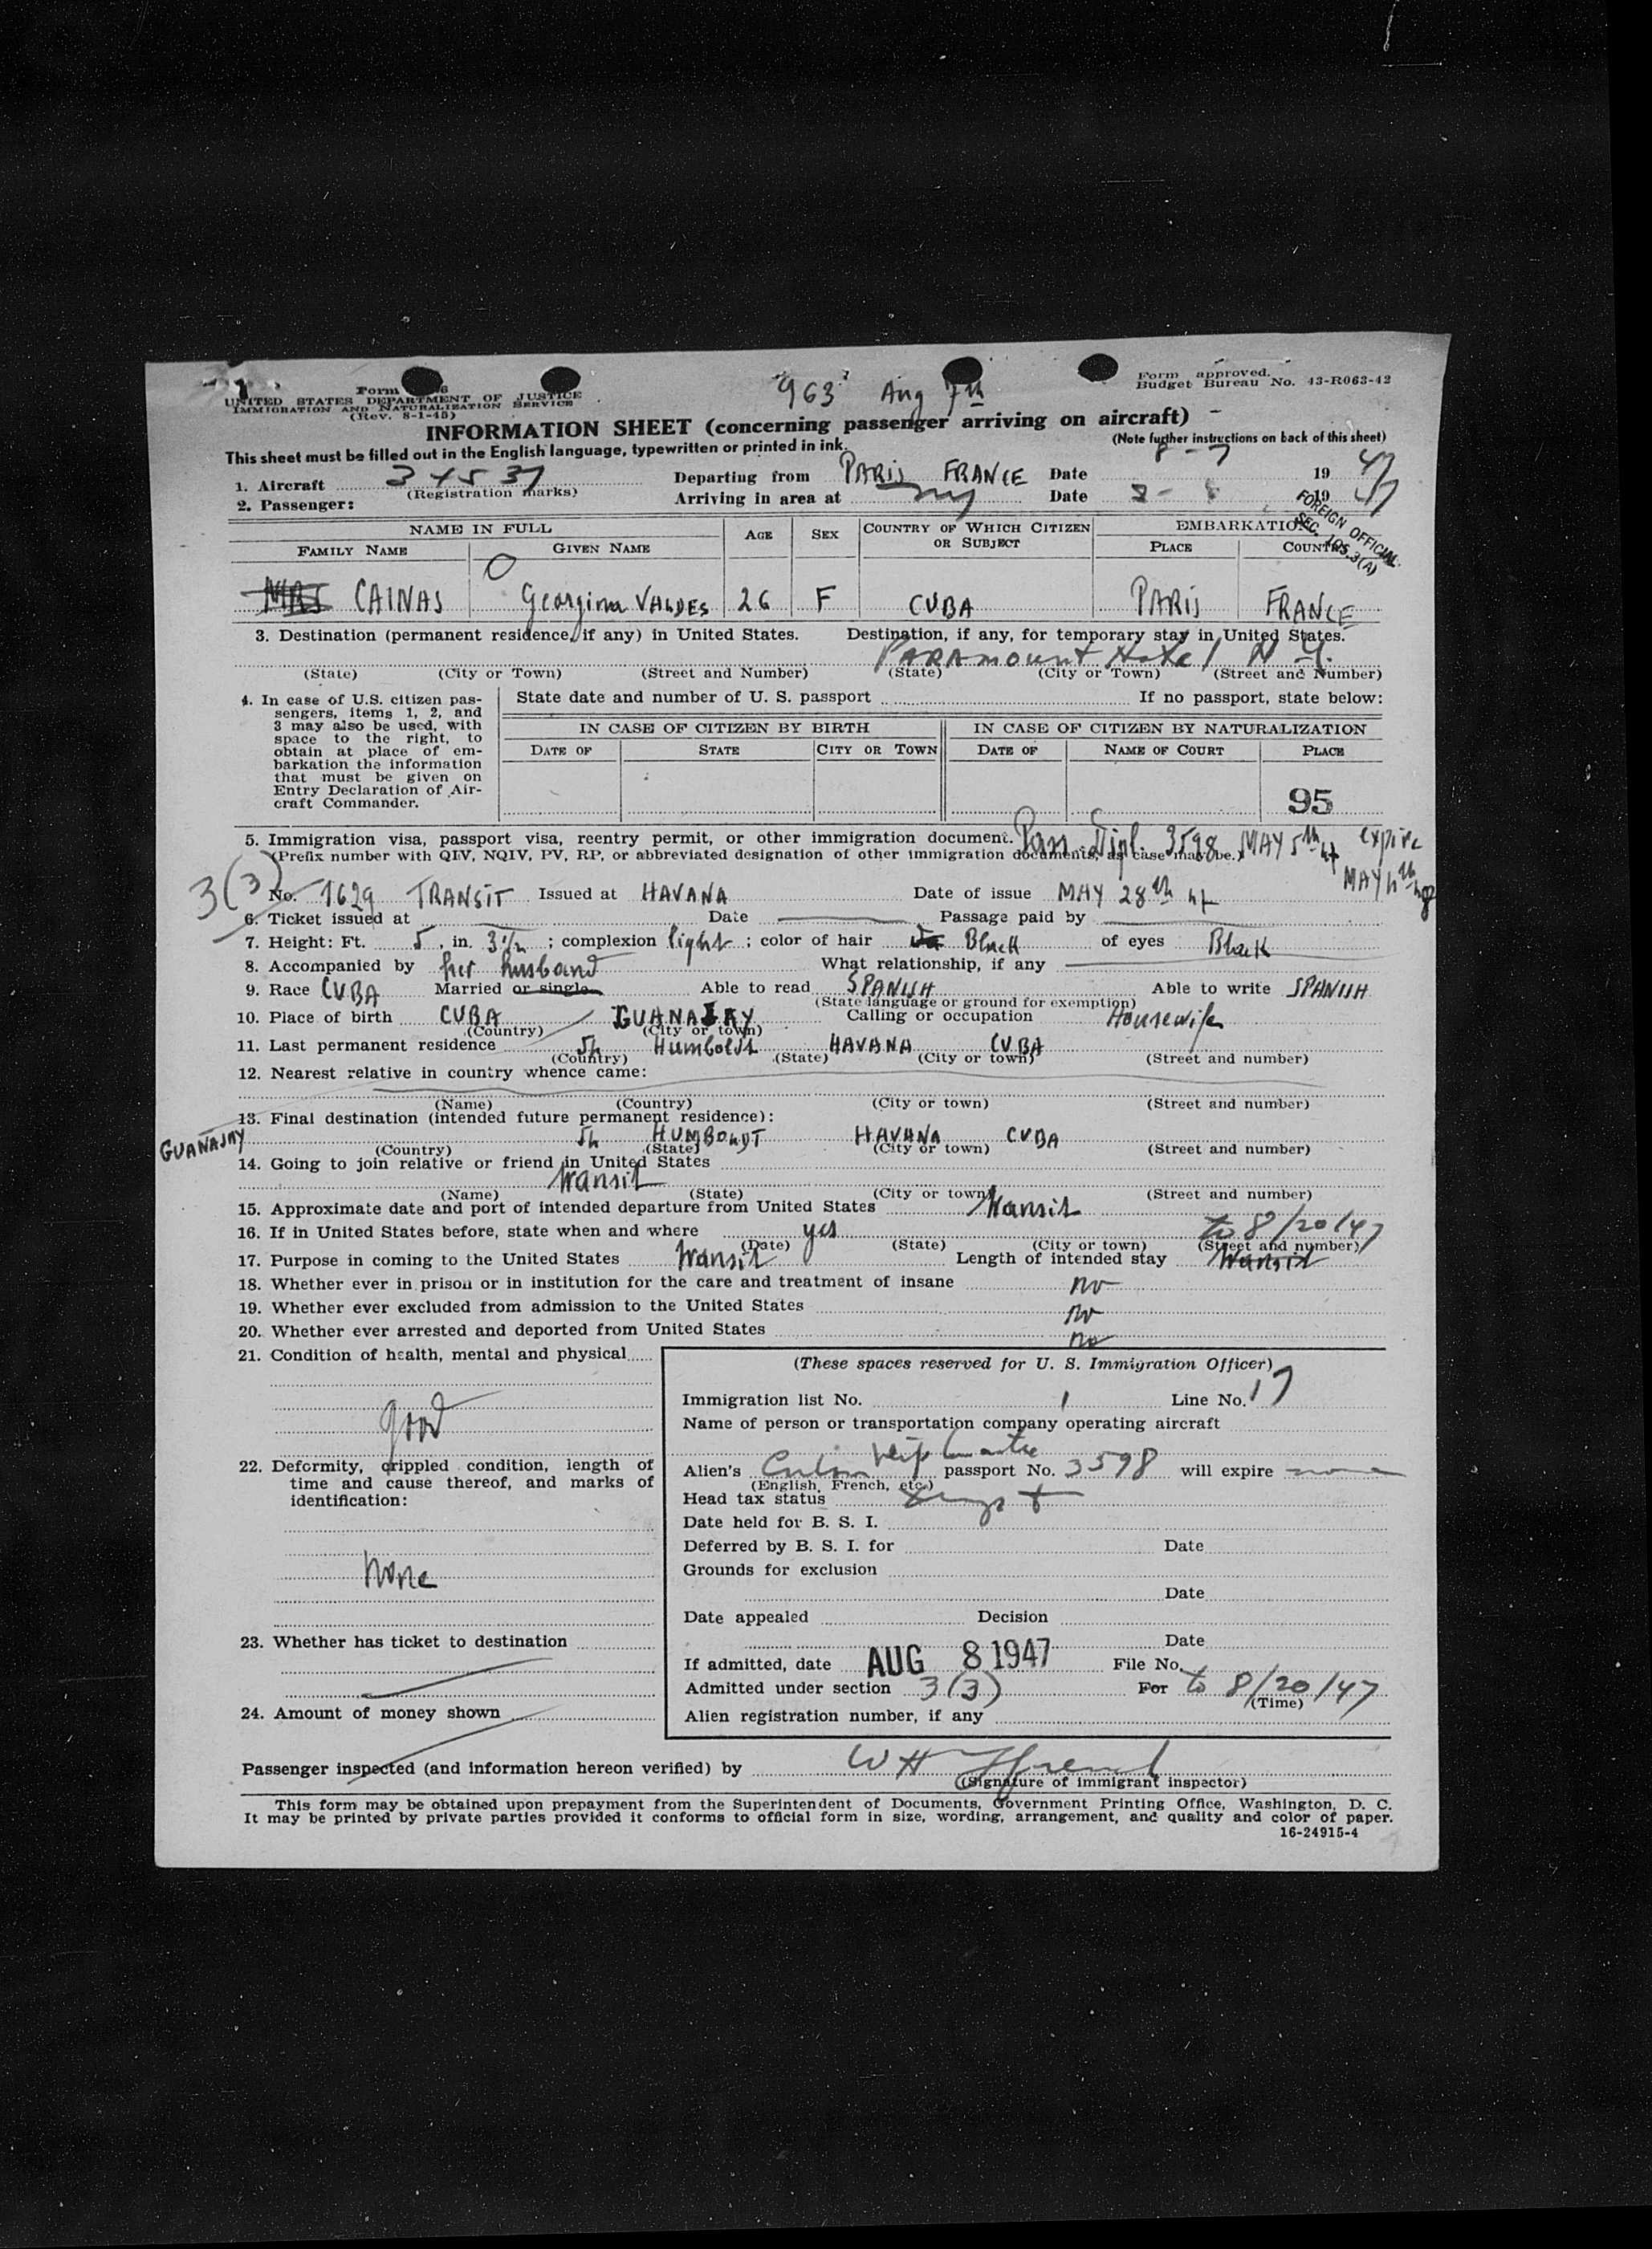 Form
UNITED STATES DEPARTMENT OF JUSTICE
IMMIGRATION AND NATURALIZATION SERVICE
(Rev. 8-1-45)
963 Aug 7th
Form approved.
Budget Bureau No. 43-R063-42
INFORMATION SHEET (concerning passenger arriving on aircraft)
(Note further instructions on back of this sheet)
This sheet must be filled out in the English language, typewritten or printed in ink.
1. Aircraft 34537 Departing from PARIS FRANCE Date 8-7 1947
(Registration marks)
2. Passenger: Arriving in area at NY Date 8-8 1947
FOREIGN OFFICIAL
SEC. 105.3(A)
NAME IN FULL AGE SEX COUNTRY OF WHICH CITIZEN OR SUBJECT EMBARKATION
FAMILY NAME GIVEN NAME PLACE COUNTRY
MRS CAINAS Georgina VALDES 26 F CUBA PARIS FRANCE
3. Destination (permanent residence, if any) in United States. Destination, if any, for temporary stay in United States.
PARAMOUNT Hotel N.Y.
(State) (City or Town) (Street and Number) (State) (City or Town) (Street and Number)
4. In case of U.S. citizen passengers, items 1, 2, and 3 may also be used, with space to the right, to obtain at place of embarkation the information that must be given on Entry Declaration of Aircraft Commander.
State date and number of U. S. passport If no passport, state below:
IN CASE OF CITIZEN BY BIRTH IN CASE OF CITIZEN BY NATURALIZATION
DATE OF STATE CITY OR TOWN DATE OF NAME OF COURT PLACE
95
5. Immigration visa, passport visa, reentry permit, or other immigration document. Pass. Dipl. 3598 MAY 5th 47 expire MAY 4th 48
(Prefix number with QIV, NQIV, PV, RP, or abbreviated designation of other immigration documents, as case may be.)
3(3)
No. 1629 TRANSIT Issued at HAVANA Date of issue MAY 28th 47
6. Ticket issued at Date Passage paid by
7. Height: Ft. 5, in. 3 1/2; complexion light; color of hair Black of eyes Black
8. Accompanied by her husband What relationship, if any
9. Race CUBA Married or single Able to read SPANISH Able to write SPANISH
(State language or ground for exemption)
10. Place of birth CUBA GUANAJAY Calling or occupation Housewife
(Country) (City or town)
11. Last permanent residence 54 Humboldt HAVANA CUBA
(Country) (State) (City or town) (Street and number)
12. Nearest relative in country whence came:
(Name) (Country) (City or town) (Street and number)
13. Final destination (intended future permanent residence):
GUANAJAY 54 HUMBOLDT HAVANA CUBA
(Country) (State) (City or town) (Street and number)
14. Going to join relative or friend in United States
transit
(Name) (State) (City or town) (Street and number)
15. Approximate date and port of intended departure from United States transit
16. If in United States before, state when and where yes to 8/20/47
(Date) (State) (City or town) (Street and number)
17. Purpose in coming to the United States transit Length of intended stay transit
18. Whether ever in prison or in institution for the care and treatment of insane no
19. Whether ever excluded from admission to the United States no
20. Whether ever arrested and deported from United States no
21. Condition of health, mental and physical
good
22. Deformity, crippled condition, length of time and cause thereof, and marks of identification:
none
23. Whether has ticket to destination
24. Amount of money shown
(These spaces reserved for U. S. Immigration Officer)
Immigration list No. 1 Line No. 17
Name of person or transportation company operating aircraft
Alien's Cuban diplomatic passport No. 3598 will expire none
(English, French, etc.)
Head tax status exempt
Date held for B. S. I.
Deferred by B. S. I. for Date
Grounds for exclusion
Date
Date appealed Decision
Date
If admitted, date AUG 8 1947 File No.
Admitted under section 3(3) For to 8/20/47
(Time)
Alien registration number, if any
Passenger inspected (and information hereon verified) by W H
(Signature of immigrant inspector)
This form may be obtained upon prepayment from the Superintendent of Documents, Government Printing Office, Washington, D. C.
It may be printed by private parties provided it conforms to official form in size, wording, arrangement, and quality and color of paper.
16-24915-4